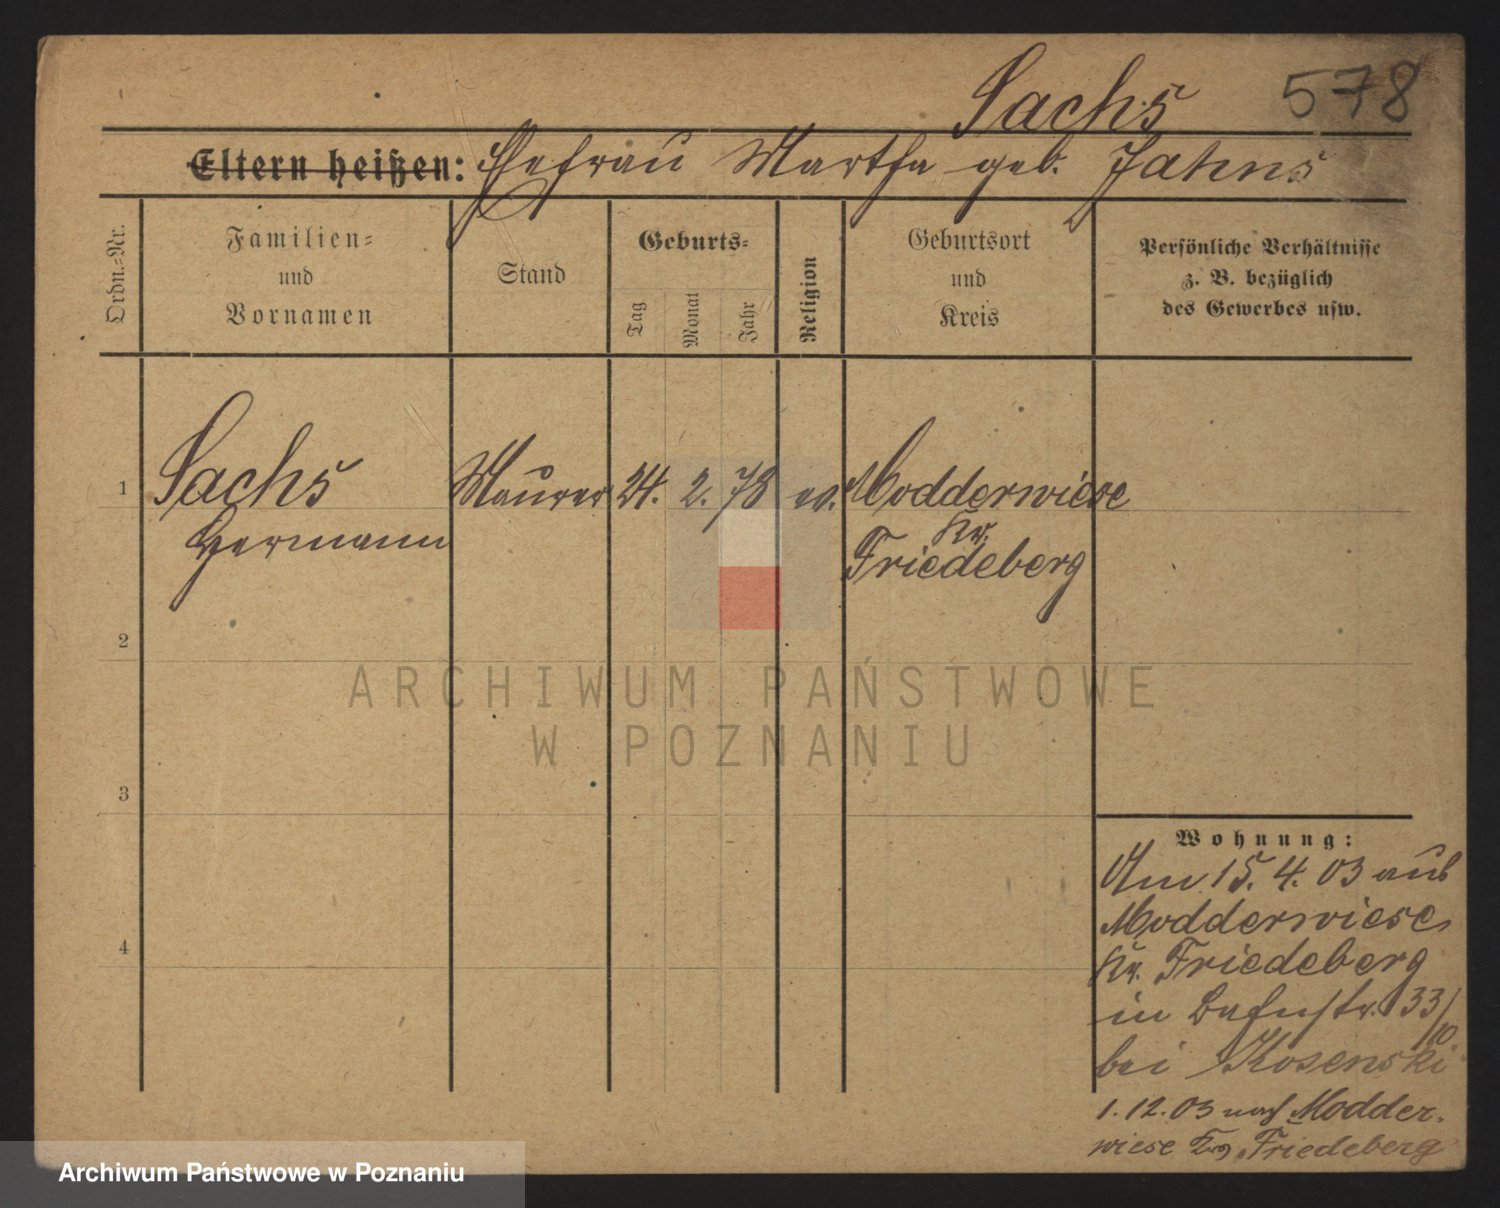 Sachs 578
Eltern heißen: Ehefrau Martha geb. Jahns
Ordn.-Nr.
Familien-
und
Vornamen
Stand
Geburts-
Tag
Monat
Jahr
Religion
Geburtsort
und
Kreis
Persönliche Verhältnisse
z. B. bezüglich
des Gewerbes usw.
1 Sachs Maurer 24. 2. 78 ev. Modderwiese
Hermann Kr.
Friedeberg
2
3
4
Wohnung:
Am 15. 4. 03 aus
Modderwiese
Kr. Friedeberg
in Bahnstr. 33/
10
bei Kosenski
1.12.03 nach Modder-
wiese Kr. Friedeberg
ARCHIWUM PAŃSTWOWE
W POZNANIU
Archiwum Państwowe w Poznaniu